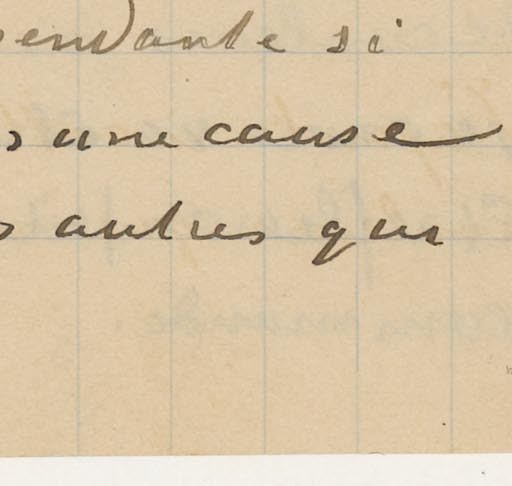 pendante si
s une cause
s autres qui